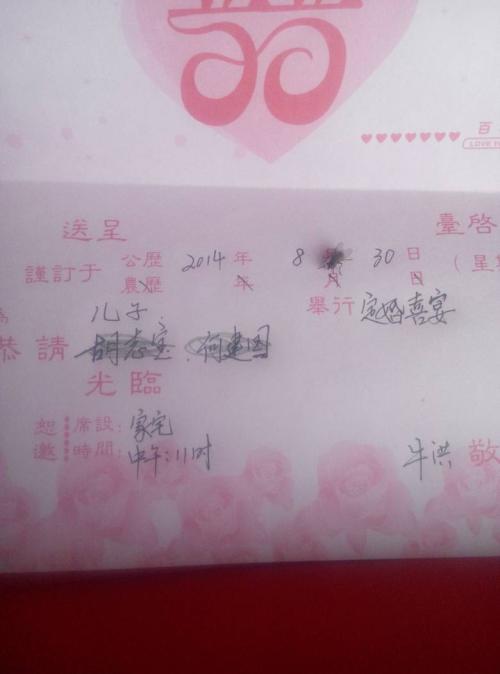 百
LOVE H
送呈 臺啓
謹訂于 公歷 2014 年 8 30 日 (星
農歷 年 月 日
儿子 舉行 定婚喜宴
恭請 胡志宝、何建国
光臨
恕 席設: 家宅
邀 時間: 中午:11时
牛洪 敬